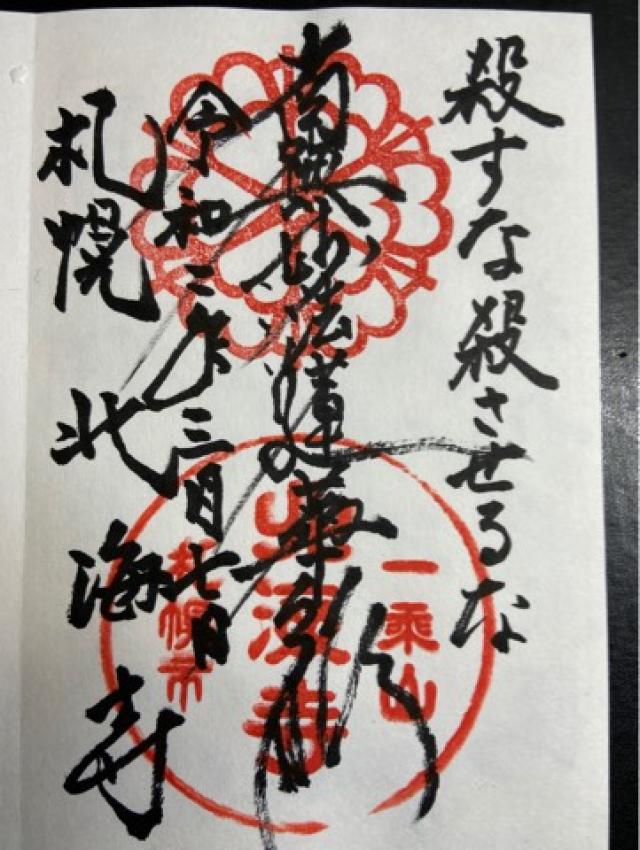 殺すな殺させるな
南無妙法蓮華経
令和三年三月七日
札幌 北海寺
一乗山
北海寺
札幌市